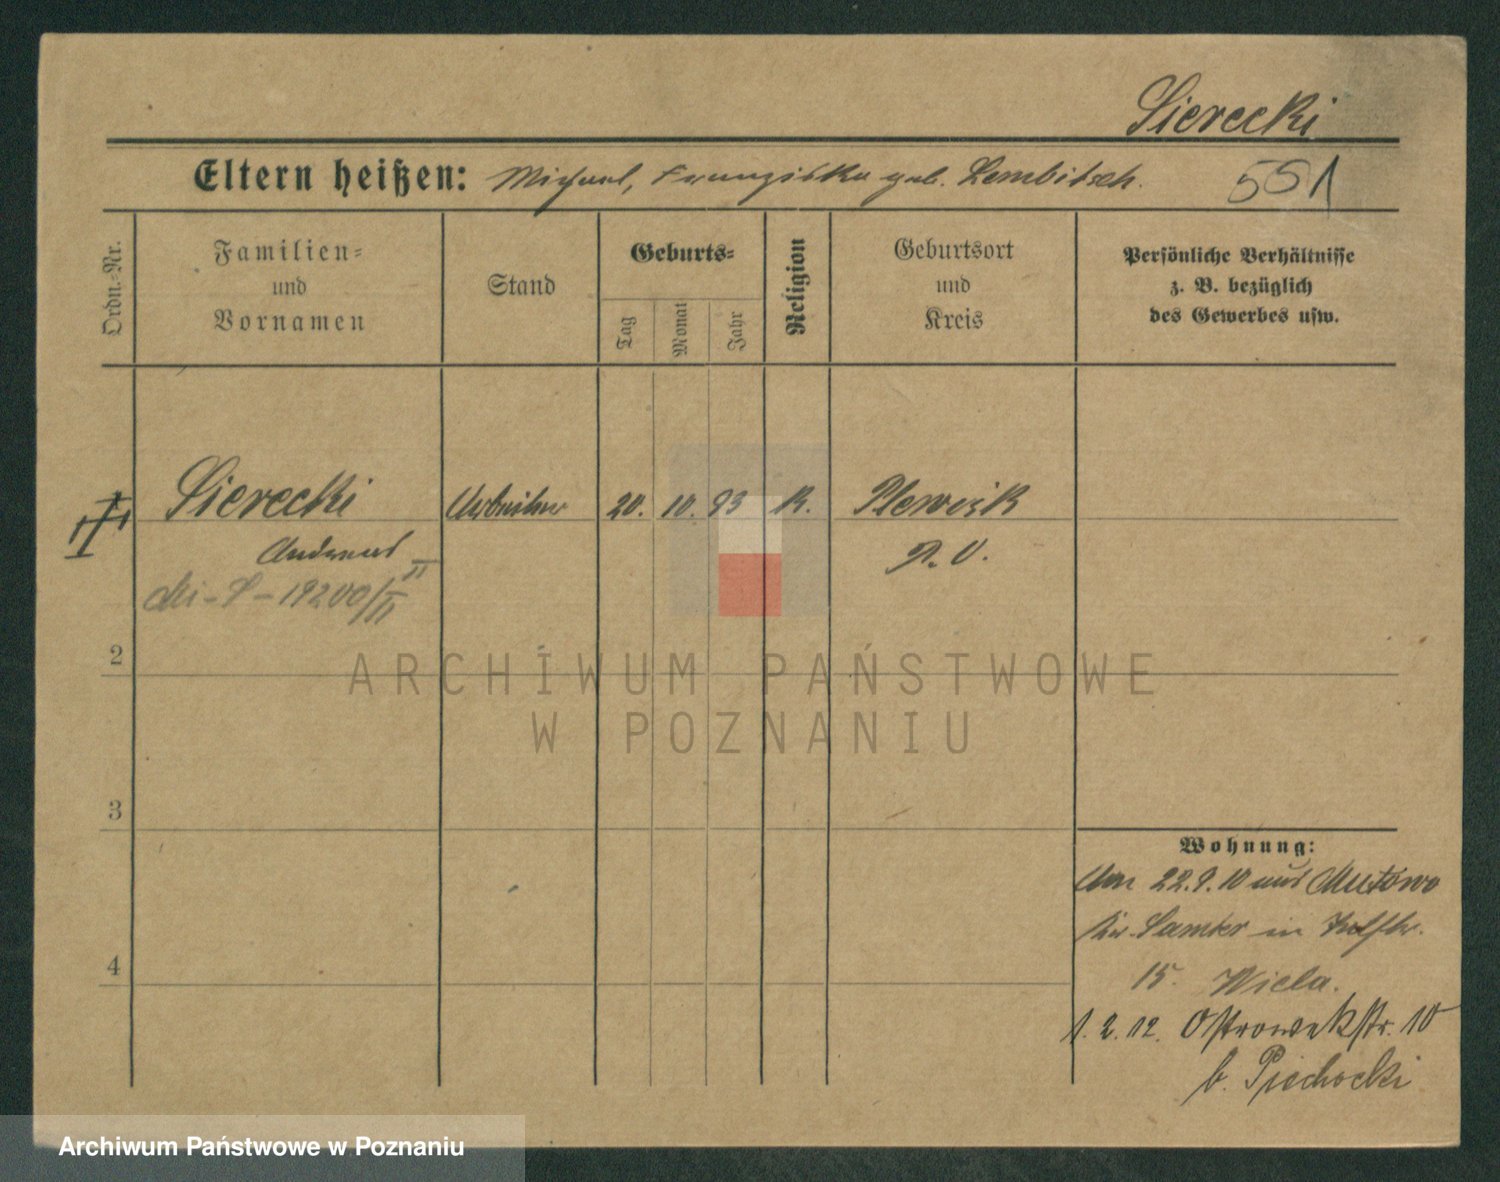 Sierecki
Eltern heißen: Michael, Franziska geb. Lembitsch.
551
Ordn.-Nr.
Familien-
und
Vornamen
Stand
Geburts-
Tag
Monat
Jahr
Religion
Geburtsort
und
Kreis
Persönliche Verhältnisse
z. B. bezüglich
des Gewerbes usw.
Sierecki Arbeiter 20. 10. 93 K. Plewisk
Andreas P. O.
19200/II
2
ARCHIWUM PAŃSTWOWE
W POZNANIU
3
Wohnung:
22.9.10 aus
Kr. Samter in
4
15. Wiela.
1. 2. 12. Ostrowekstr. 10
b. Piechocki
Archiwum Państwowe w Poznaniu